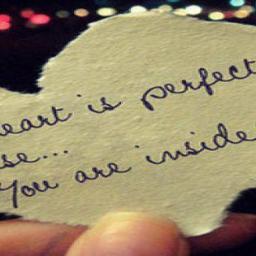 eart is perfect
se...
You are inside